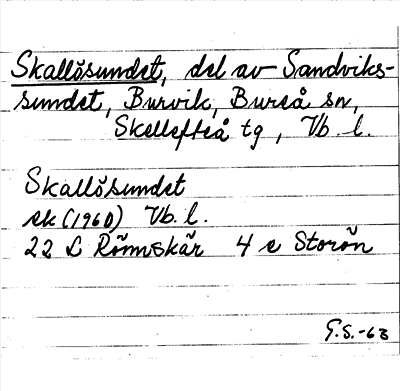 Skallösundet, del av Sandviks-
sundet, Burvik, Bureå sn,
Skellefteå tg, Vb. l.
Skallösundet
ek (1960) Vb. l.
22 L Rönnskär 4 e Storön
G.S.-63